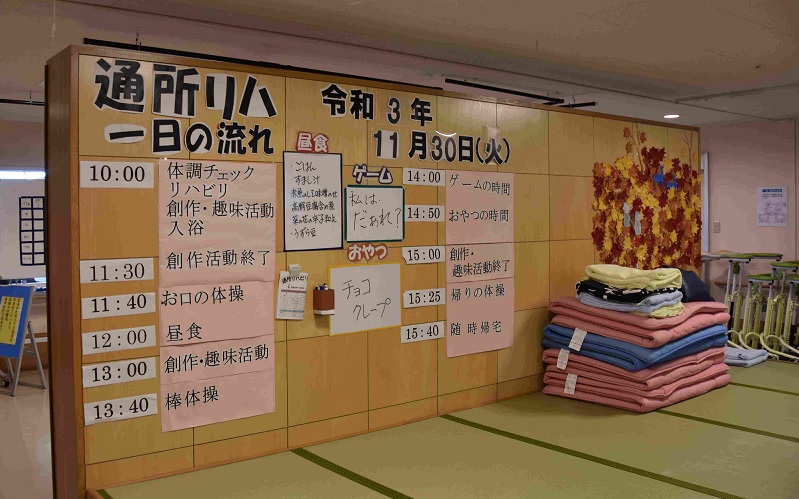 通所リハ
一日の流れ
令和 3 年
11月30日(火)
10:00
体調チェック
リハビリ
創作・趣味活動
入浴
11:30
創作活動終了
11:40
お口の体操
12:00
昼食
13:00
創作・趣味活動
13:40
棒体操
昼食
・ごはん
すまし汁
・うずら豆
ゲーム
私は
だあれ?
おやつ
チョコ
クレープ
14:00
ゲームの時間
14:50
おやつの時間
15:00
創作・
趣味活動終了
15:25
帰りの体操
15:40
随時帰宅